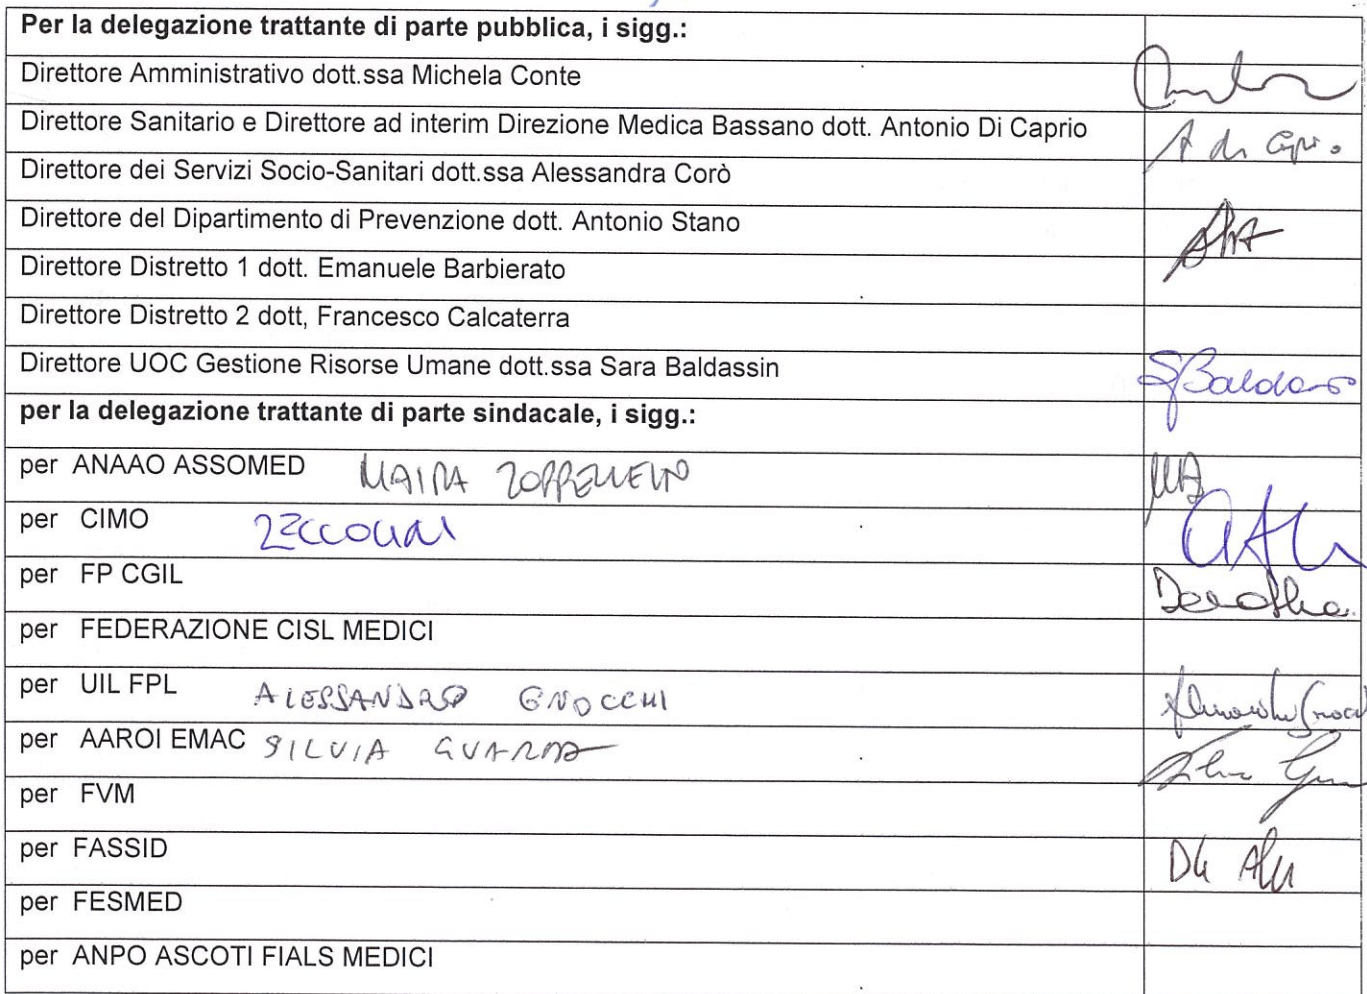 Per la delegazione trattante di parte pubblica, i sigg.:
Direttore Amministrativo dott.ssa Michela Conte
Direttore Sanitario e Direttore ad interim Direzione Medica Bassano dott. Antonio Di Caprio A di Caprio
Direttore dei Servizi Socio-Sanitari dott.ssa Alessandra Corò
Direttore del Dipartimento di Prevenzione dott. Antonio Stano
Direttore Distretto 1 dott. Emanuele Barbierato
Direttore Distretto 2 dott, Francesco Calcaterra
Direttore UOC Gestione Risorse Umane dott.ssa Sara Baldassin
per la delegazione trattante di parte sindacale, i sigg.:
per ANAAO ASSOMED
per CIMO
per FP CGIL
per FEDERAZIONE CISL MEDICI
per UIL FPL ALESSANDRO GNOCCHI
per AAROI EMAC SILVIA GUARDA
per FVM
per FASSID
per FESMED
per ANPO ASCOTI FIALS MEDICI